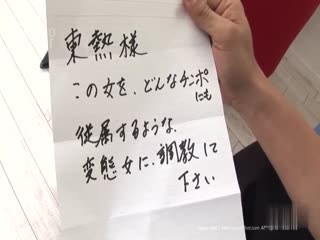 東熱様
この女を、どんなチンポ
にも
従属するような、
変態女に、調教して
下さい